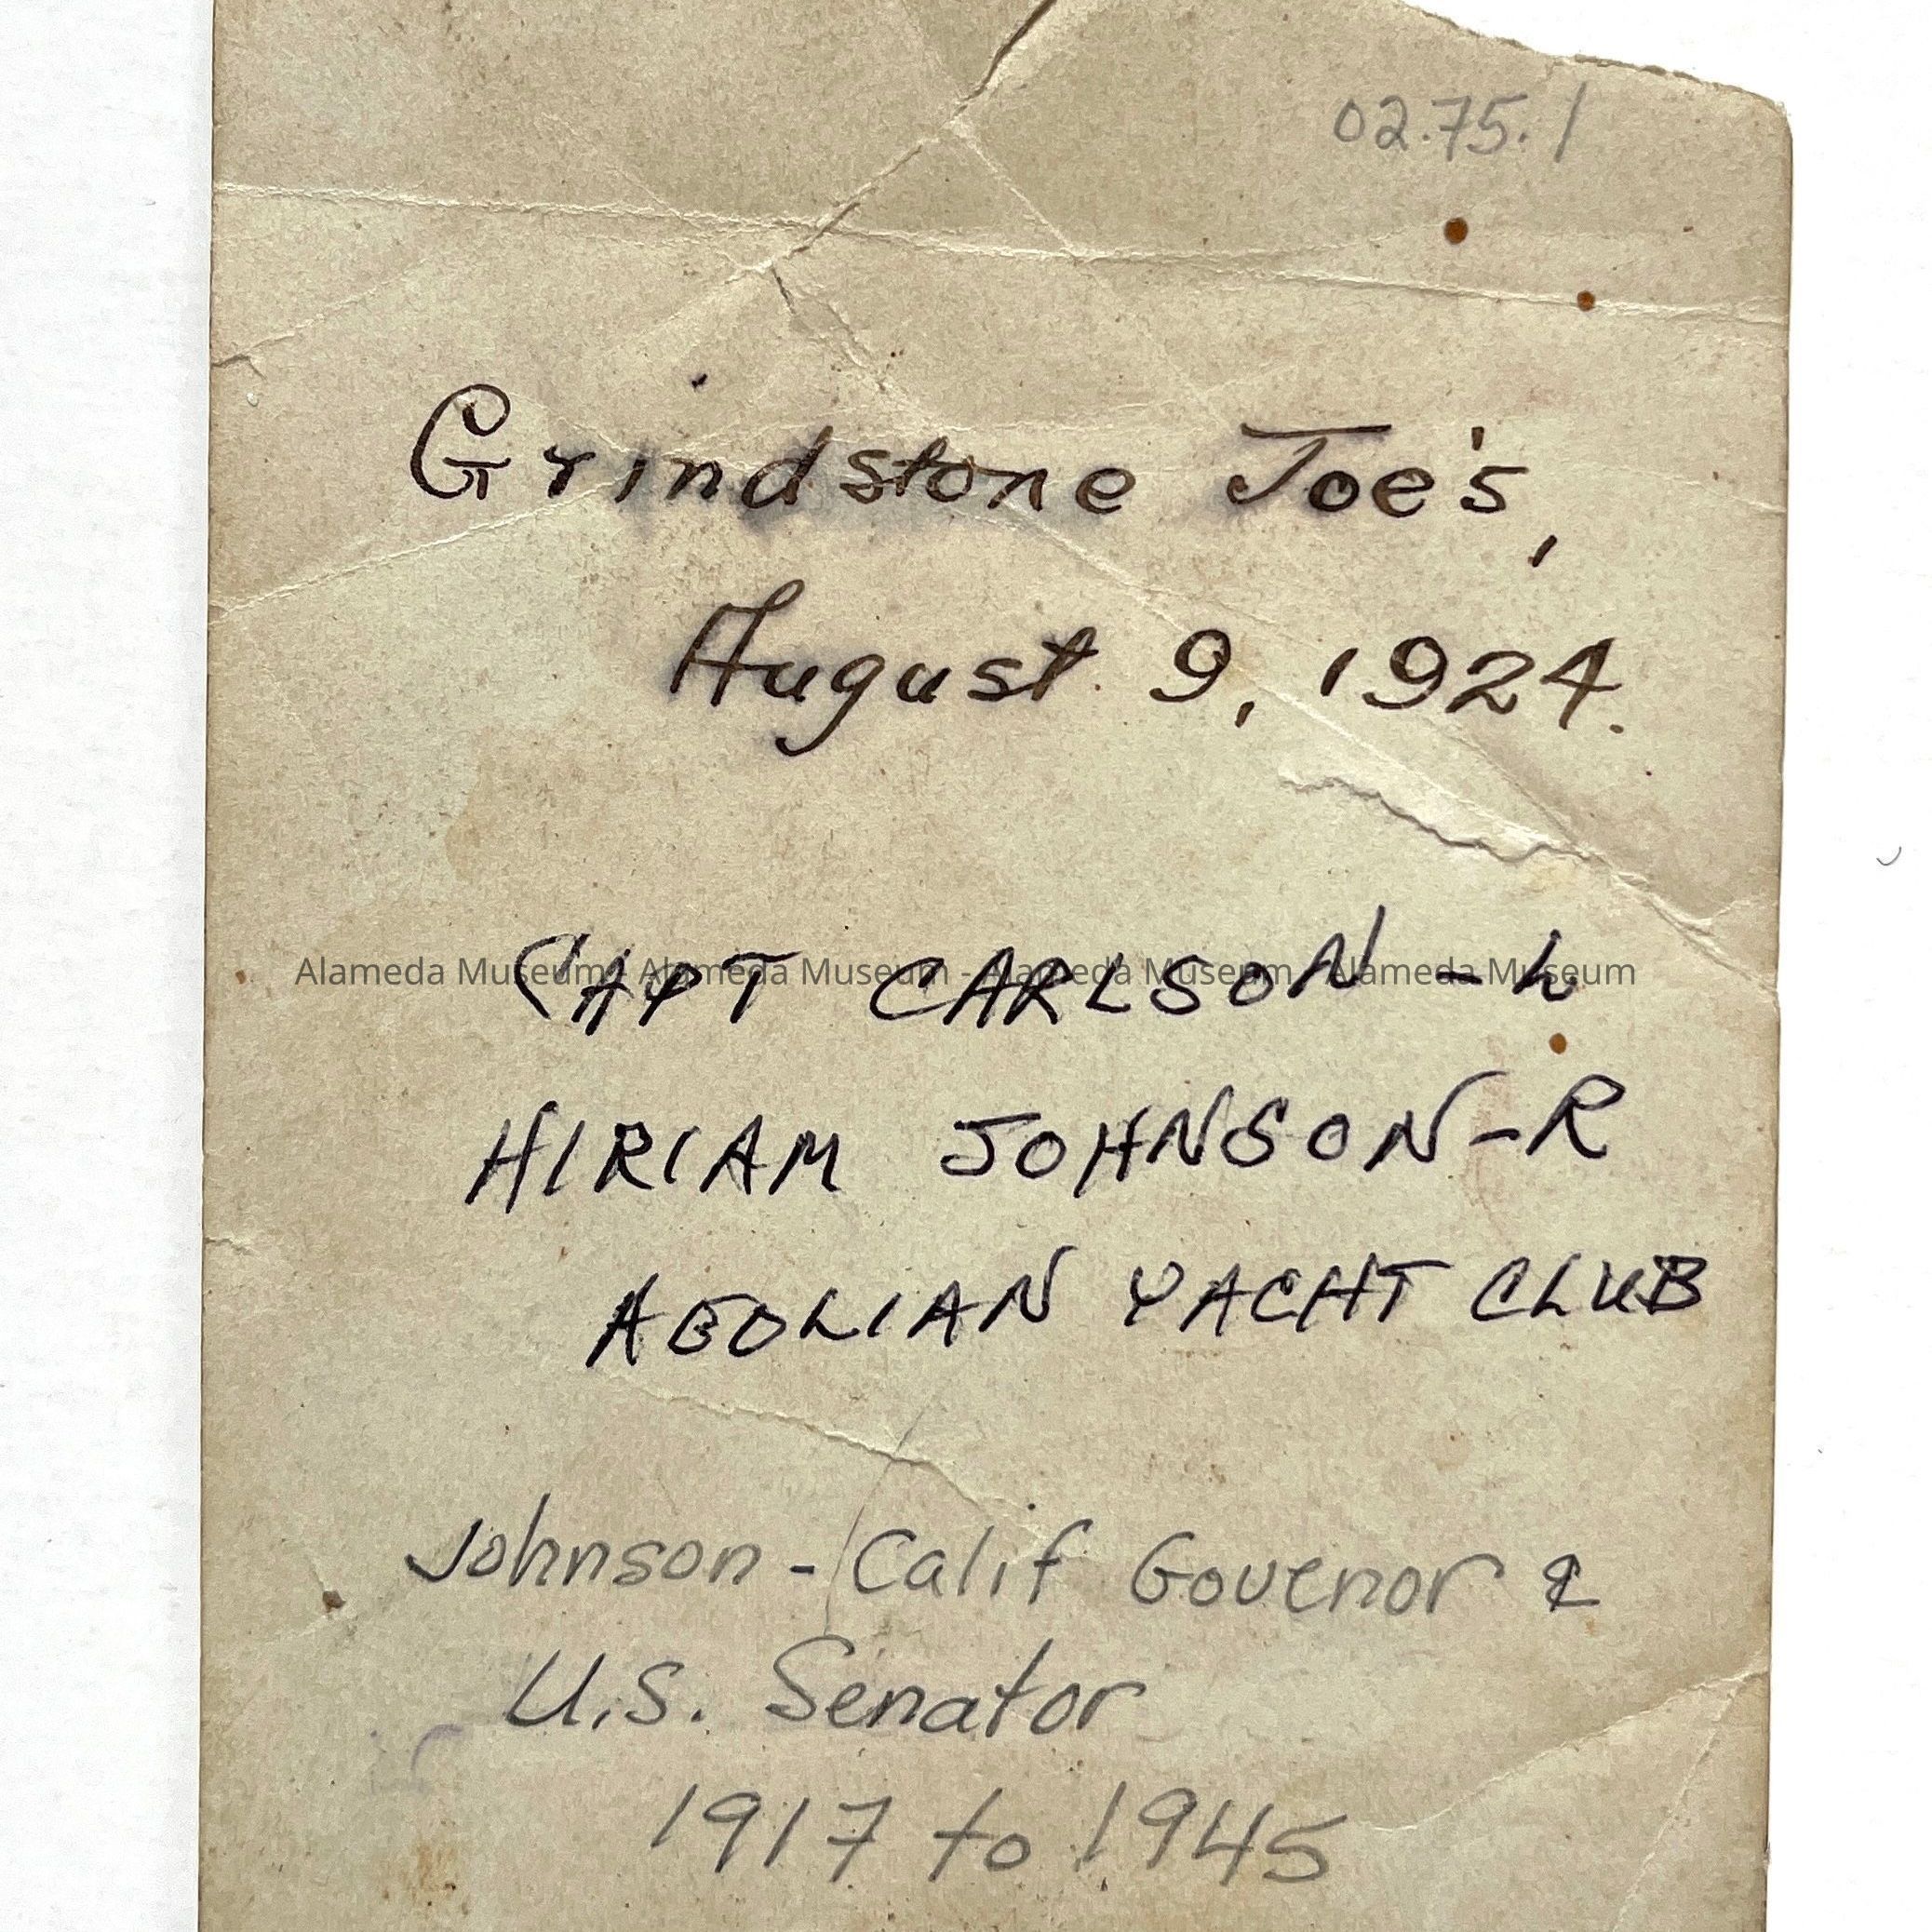 02.75.1
Grindstone Joe's,
August 9, 1924.
CAPT CARLSON - L
Alameda Museum - Alameda Museum - Alameda Museum - Alameda Museum
HIRIAM JOHNSON - R
AEOLIAN YACHT CLUB
Johnson - Calif Govenor &
U.S. Senator
1917 to 1945